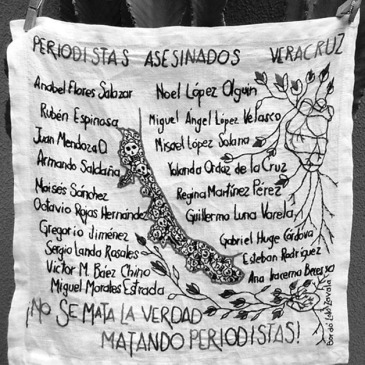 PERIODISTAS ASESINADOS VERACRUZ
Anabel Flores Salazar
Rubén Espinosa
Juan Mendoza D
Armando Saldaña
Moisés Sánchez
Octavio Rojas Hernández
Gregorio Jiménez
Sergio Landa Rosales
Victor M. Báez Chino
Miguel Morales Estrada
Noel López Olguin
Miguel Ángel López Velasco
Misael López Solana
Yolanda Ordaz de la Cruz
Regina Martínez Pérez
Guillermo Luna Varela
Gabriel Huge Córdova
Esteban Rodríguez
Ana Iracema Becerra
¡NO SE MATA LA VERDAD
MATANDO PERIODISTAS!